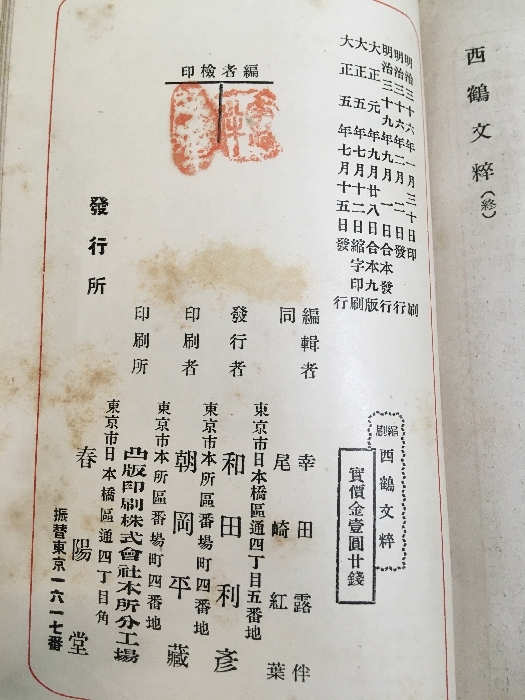 西鶴文粹（終）
明治三十六年一月三十日印刷
明治三十六年二月二日發行
明治三十九年九月一日合本發行
大正元年九月廿八日合本九版
大正五年七月十二日縮字印刷
大正五年七月十五日發行
編者檢印
縮刷
西鶴文粹
實價金壹圓廿錢
編輯者 幸田露伴
同 尾崎紅葉
東京市日本橋區通四丁目五番地
發行者 和田利彥
東京市本所區番場町四番地
印刷者 朝岡平藏
東京市本所區番場町四番地
印刷所 凸版印刷株式會社本所分工場
東京市日本橋區通四丁目角
發行所 春陽堂
振替東京一六一七番